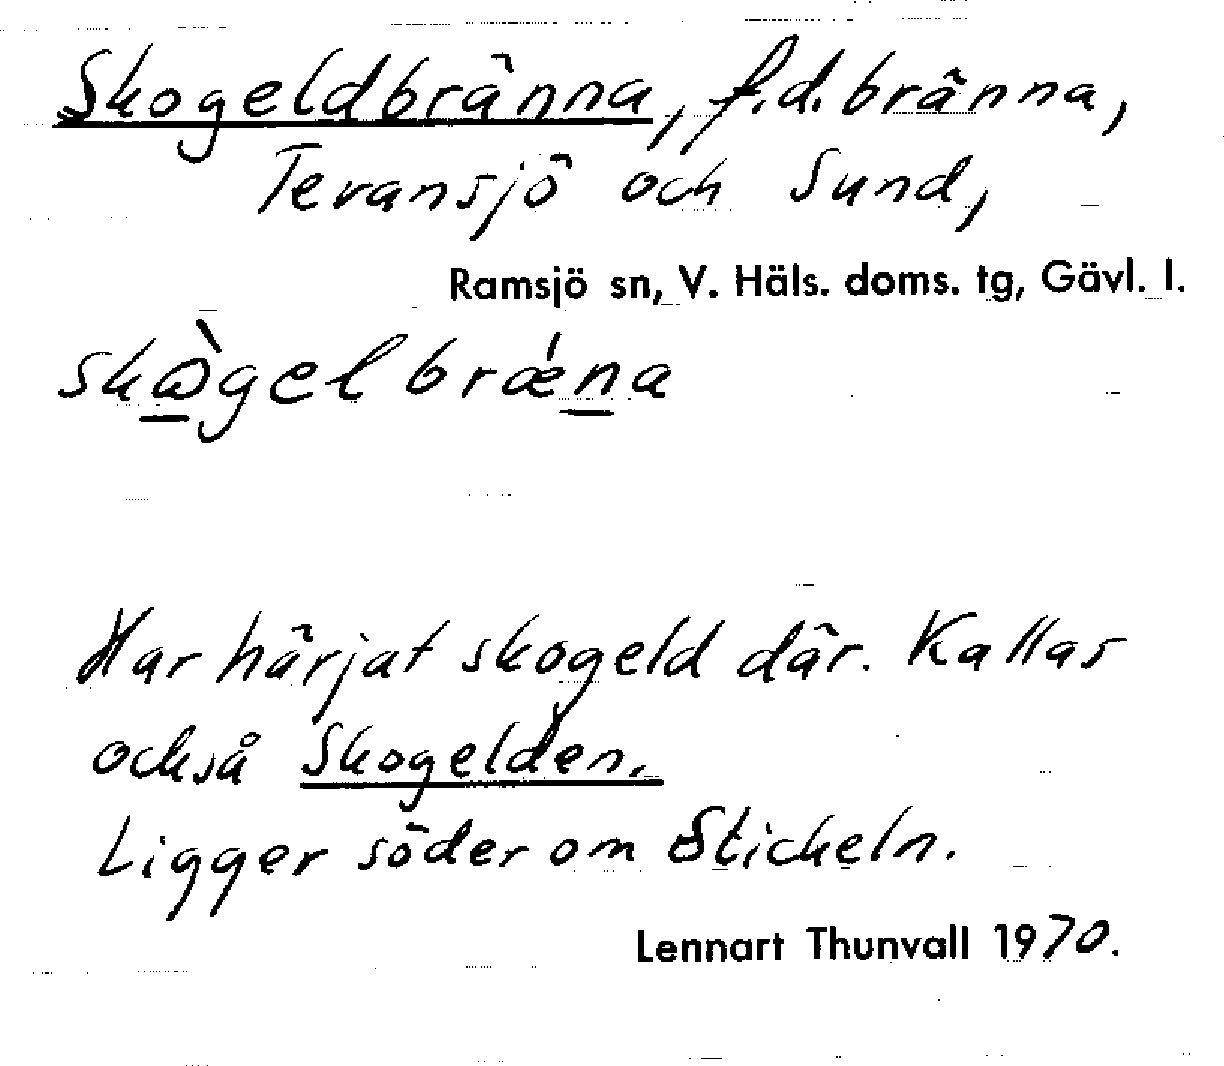 Skogeldbränna, f.d. bränna,
Tevansjö och Sund,
Ramsjö sn, V. Häls. doms. tg, Gävl. l.
skὼgel brǽna
Har härjat skogeld där. Kallas
också Skogelden.
Ligger söder om Stickeln.
Lennart Thunvall 1970.